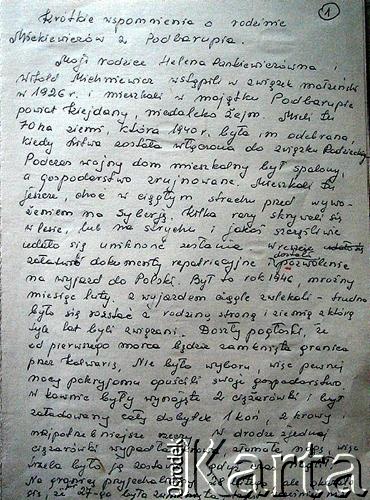 1
Krótkie wspomnienia o rodzinie
Mickiewiczów z Podbarupia.
Moji rodzice Helena Jankiewiczówna i
Witold wstąpili w związek małżeński
w 1926 r. i mieszkali w majątku Podbarupie
powiat Kiejdany, niedaleko Żejm. Mieli tu
70 ha ziemi, która 1940 r. była im odebrana,
kiedy Litwa została włączona do związku Radzieckiego
Podczas wojny dom mieszkalny był spalony,
a gospodarstwo zrujnowane. Mieszkali tu
jeszcze, choć w ciągłym strachu przed wywo-
żeniem na Syberję. Kilka razy skrywali się
w lesie, lub na strychu i jakoś szczęśliwie
udało się uniknąć zesłania w reszcie udało się
dostali
dokumenty repatriacyjne i pozwolenie
na wyjazd do Polski. Był to rok 1946, mroźny
miesiąc luty. Z wyjazdem ciągle zwlekali - trudno
było się rozstać z rodziną stroną i ziemią z którą
tyle lat byli związani. Doszły pogłoski, że
od pierwszego marca będzie zamknięta granica
przez Kalwaris. Nie było wyboru, więc pewnej
nocy pokryjomu opuścili swoje gospodarstwo.
w Kownie były wynajęte 2 ciężarówki i był
załadowany cały dobytek 1 koń, 2 krowy i
najpotrzebniejsze rzeczy. W drodze z jednej
ciężarówki wypadła krowa, i złamała nogę, więc
trzeba było ją zostawić
Na granicę przyjechaliśmy 28 lutego, ale
że 27-go była zamknięta
Ośrodek
Karta